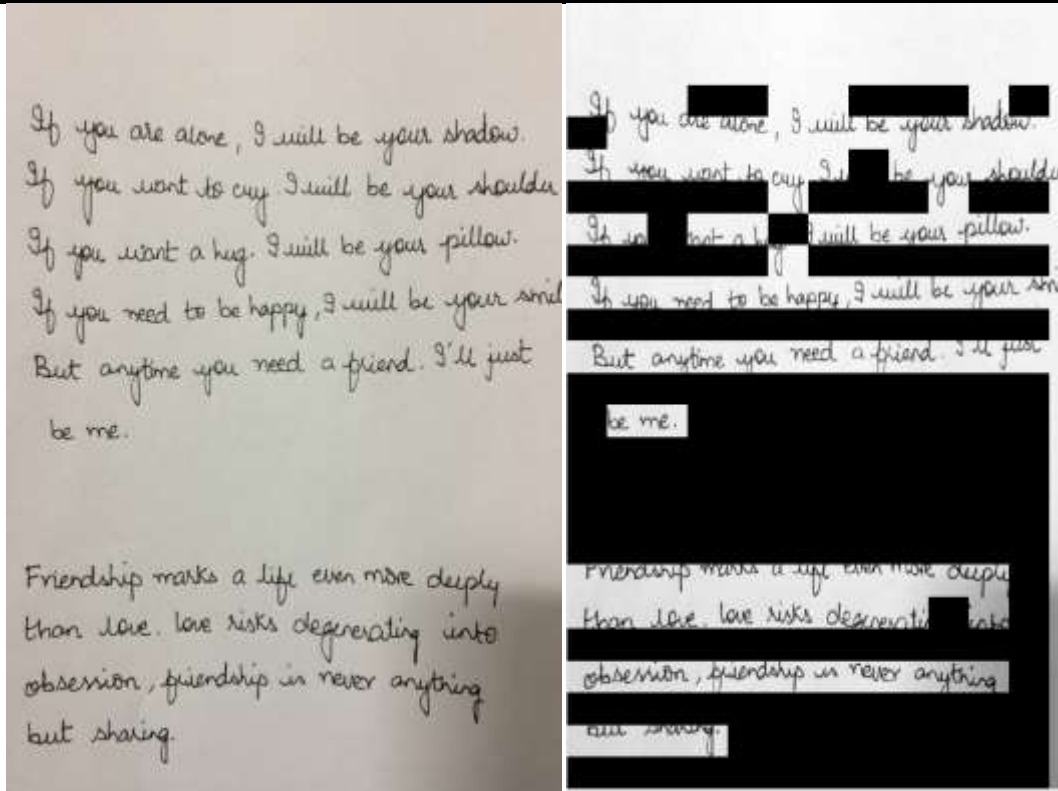 If you are alone, I will be your shadow.
If you want to cry I will be your shoulder
If you want a hug. I will be your pillow.
If you need to be happy, I will be your smil
But anytime you need a friend. I'll just
be me.
Friendship marks a life even more deeply
than love. love risks degenerating into
obsession, friendship is never anything
but sharing.
If you are alone, I will be your shadow.
If you want to cry I be your
If a I will be your pillow.
If you need to be happy, I will be your
But anytime you need a friend. I'll just
be me.
Friendship marks a life even more deeply
than love. love risks
obsession, friendship is never anything
but sharing.